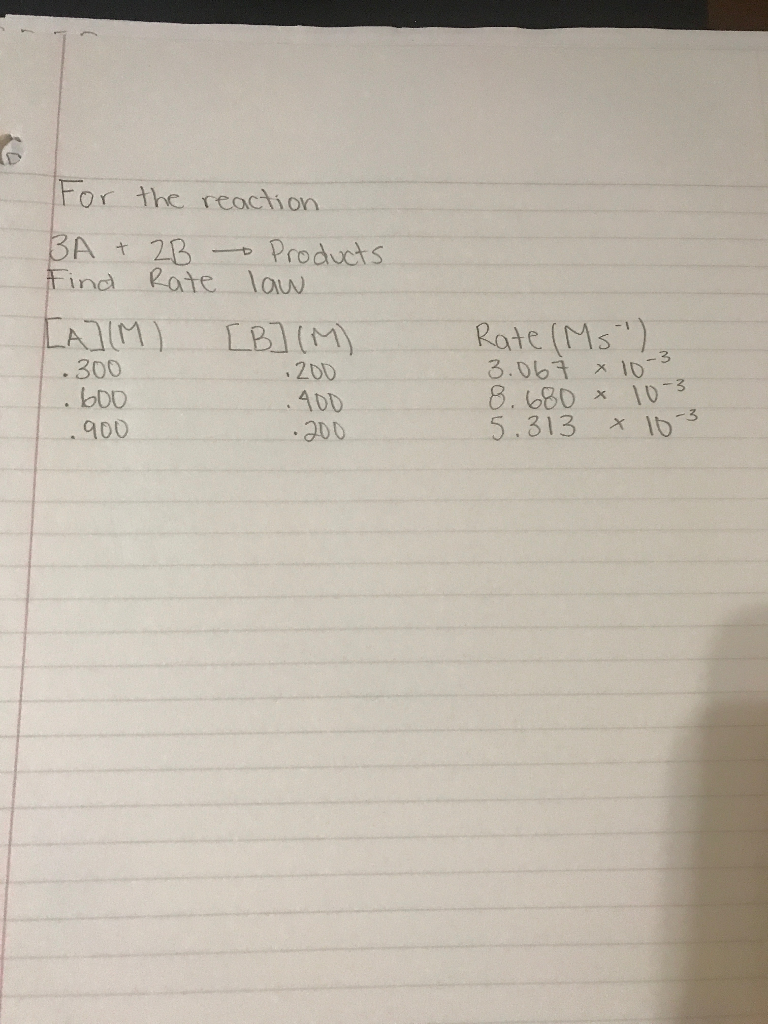 For the reaction
3A + 2B → Products
Find Rate law
[A](M) [B](M) Rate (Ms⁻¹)
.300 .200 3.067 × 10⁻³
.600 .400 8.680 × 10⁻³
.900 .200 5.313 × 10⁻³